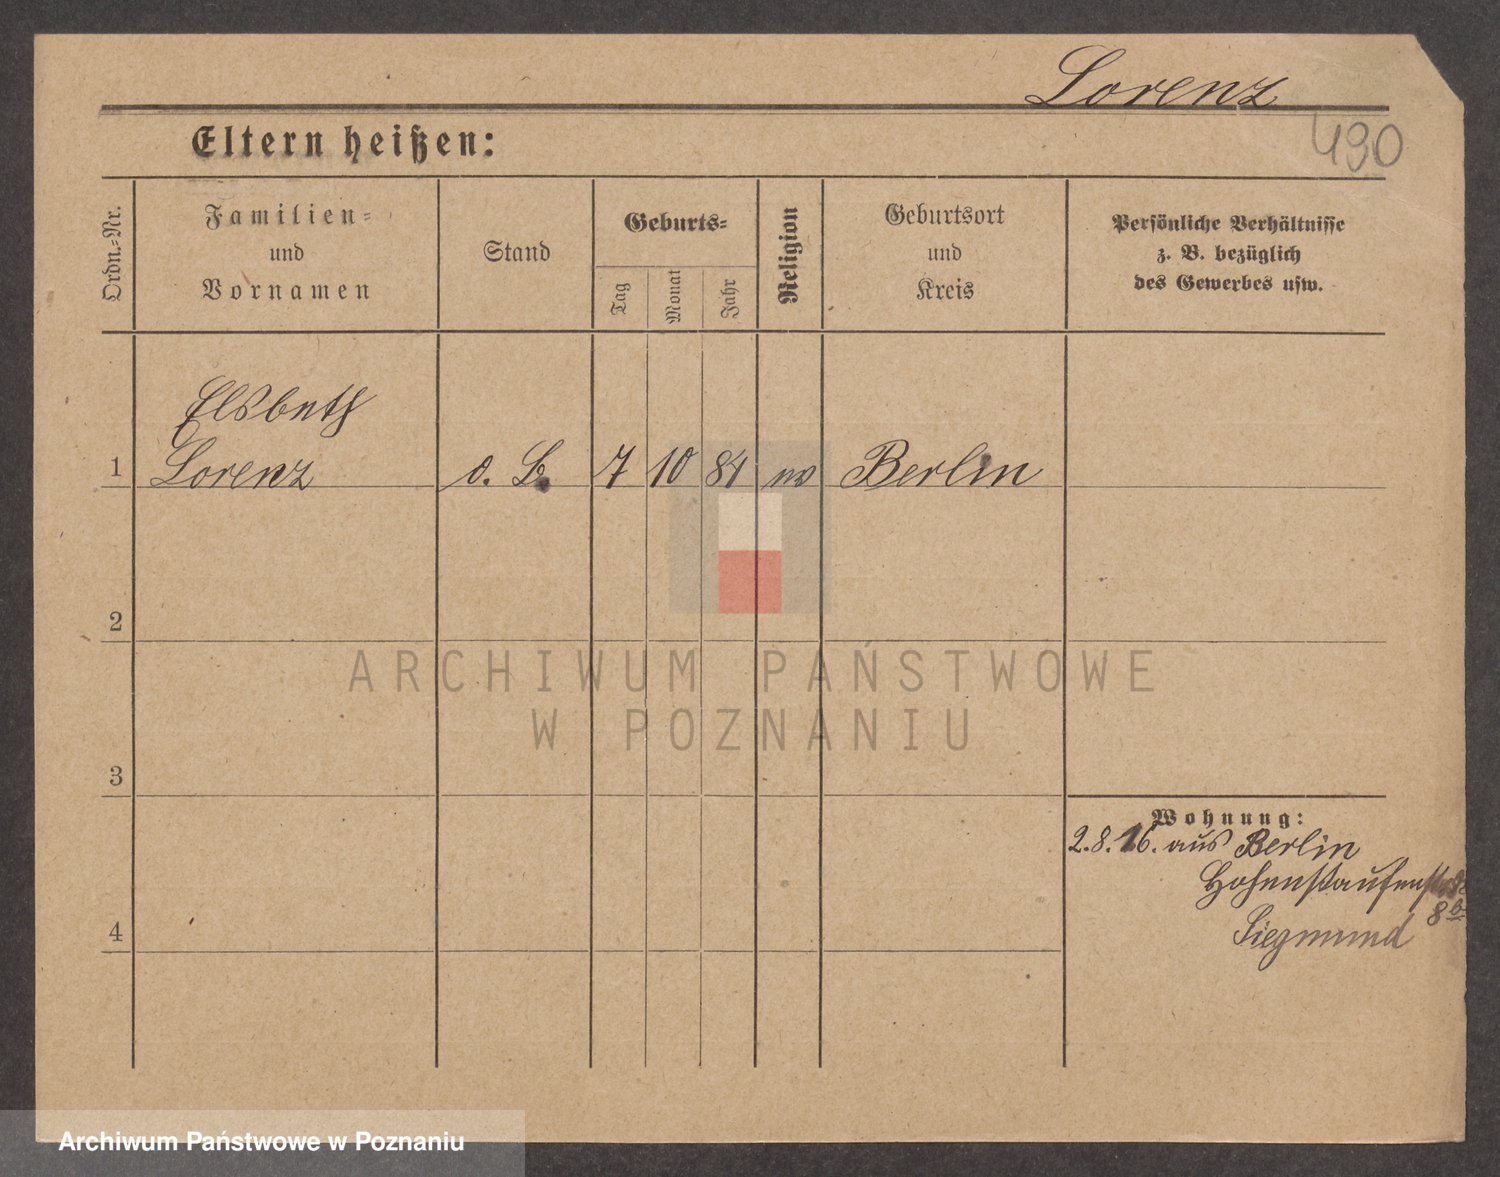 Lorenz
490
Eltern heißen:
Ordn.-Nr.
Familien-
und
Vornamen
Stand
Geburts-
Tag
Monat
Jahr
Religion
Geburtsort
und
Kreis
Persönliche Verhältnisse
z. B. bezüglich
des Gewerbes usw.
Elsbeth
1 Lorenz o. B. 7 10 84 ev Berlin
2
3
4
Wohnung:
2.8.16. aus Berlin
Hohenstaufenstr
8
Siegmund
ARCHIWUM PAŃSTWOWE
W POZNANIU
Archiwum Państwowe w Poznaniu